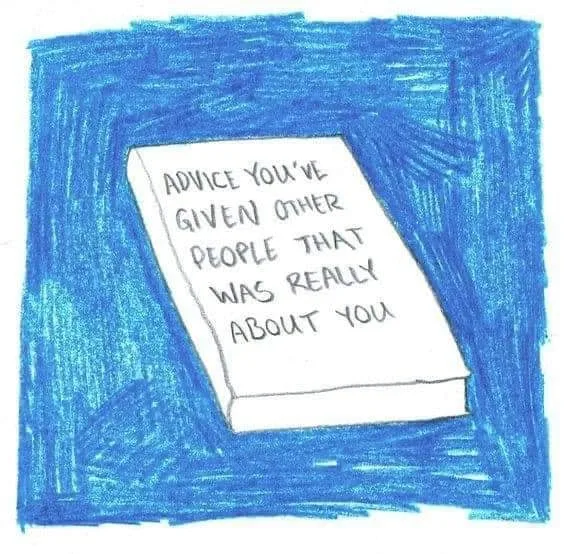 ADVICE YOU'VE
GIVEN OTHER
PEOPLE THAT
WAS REALLY
ABOUT YOU